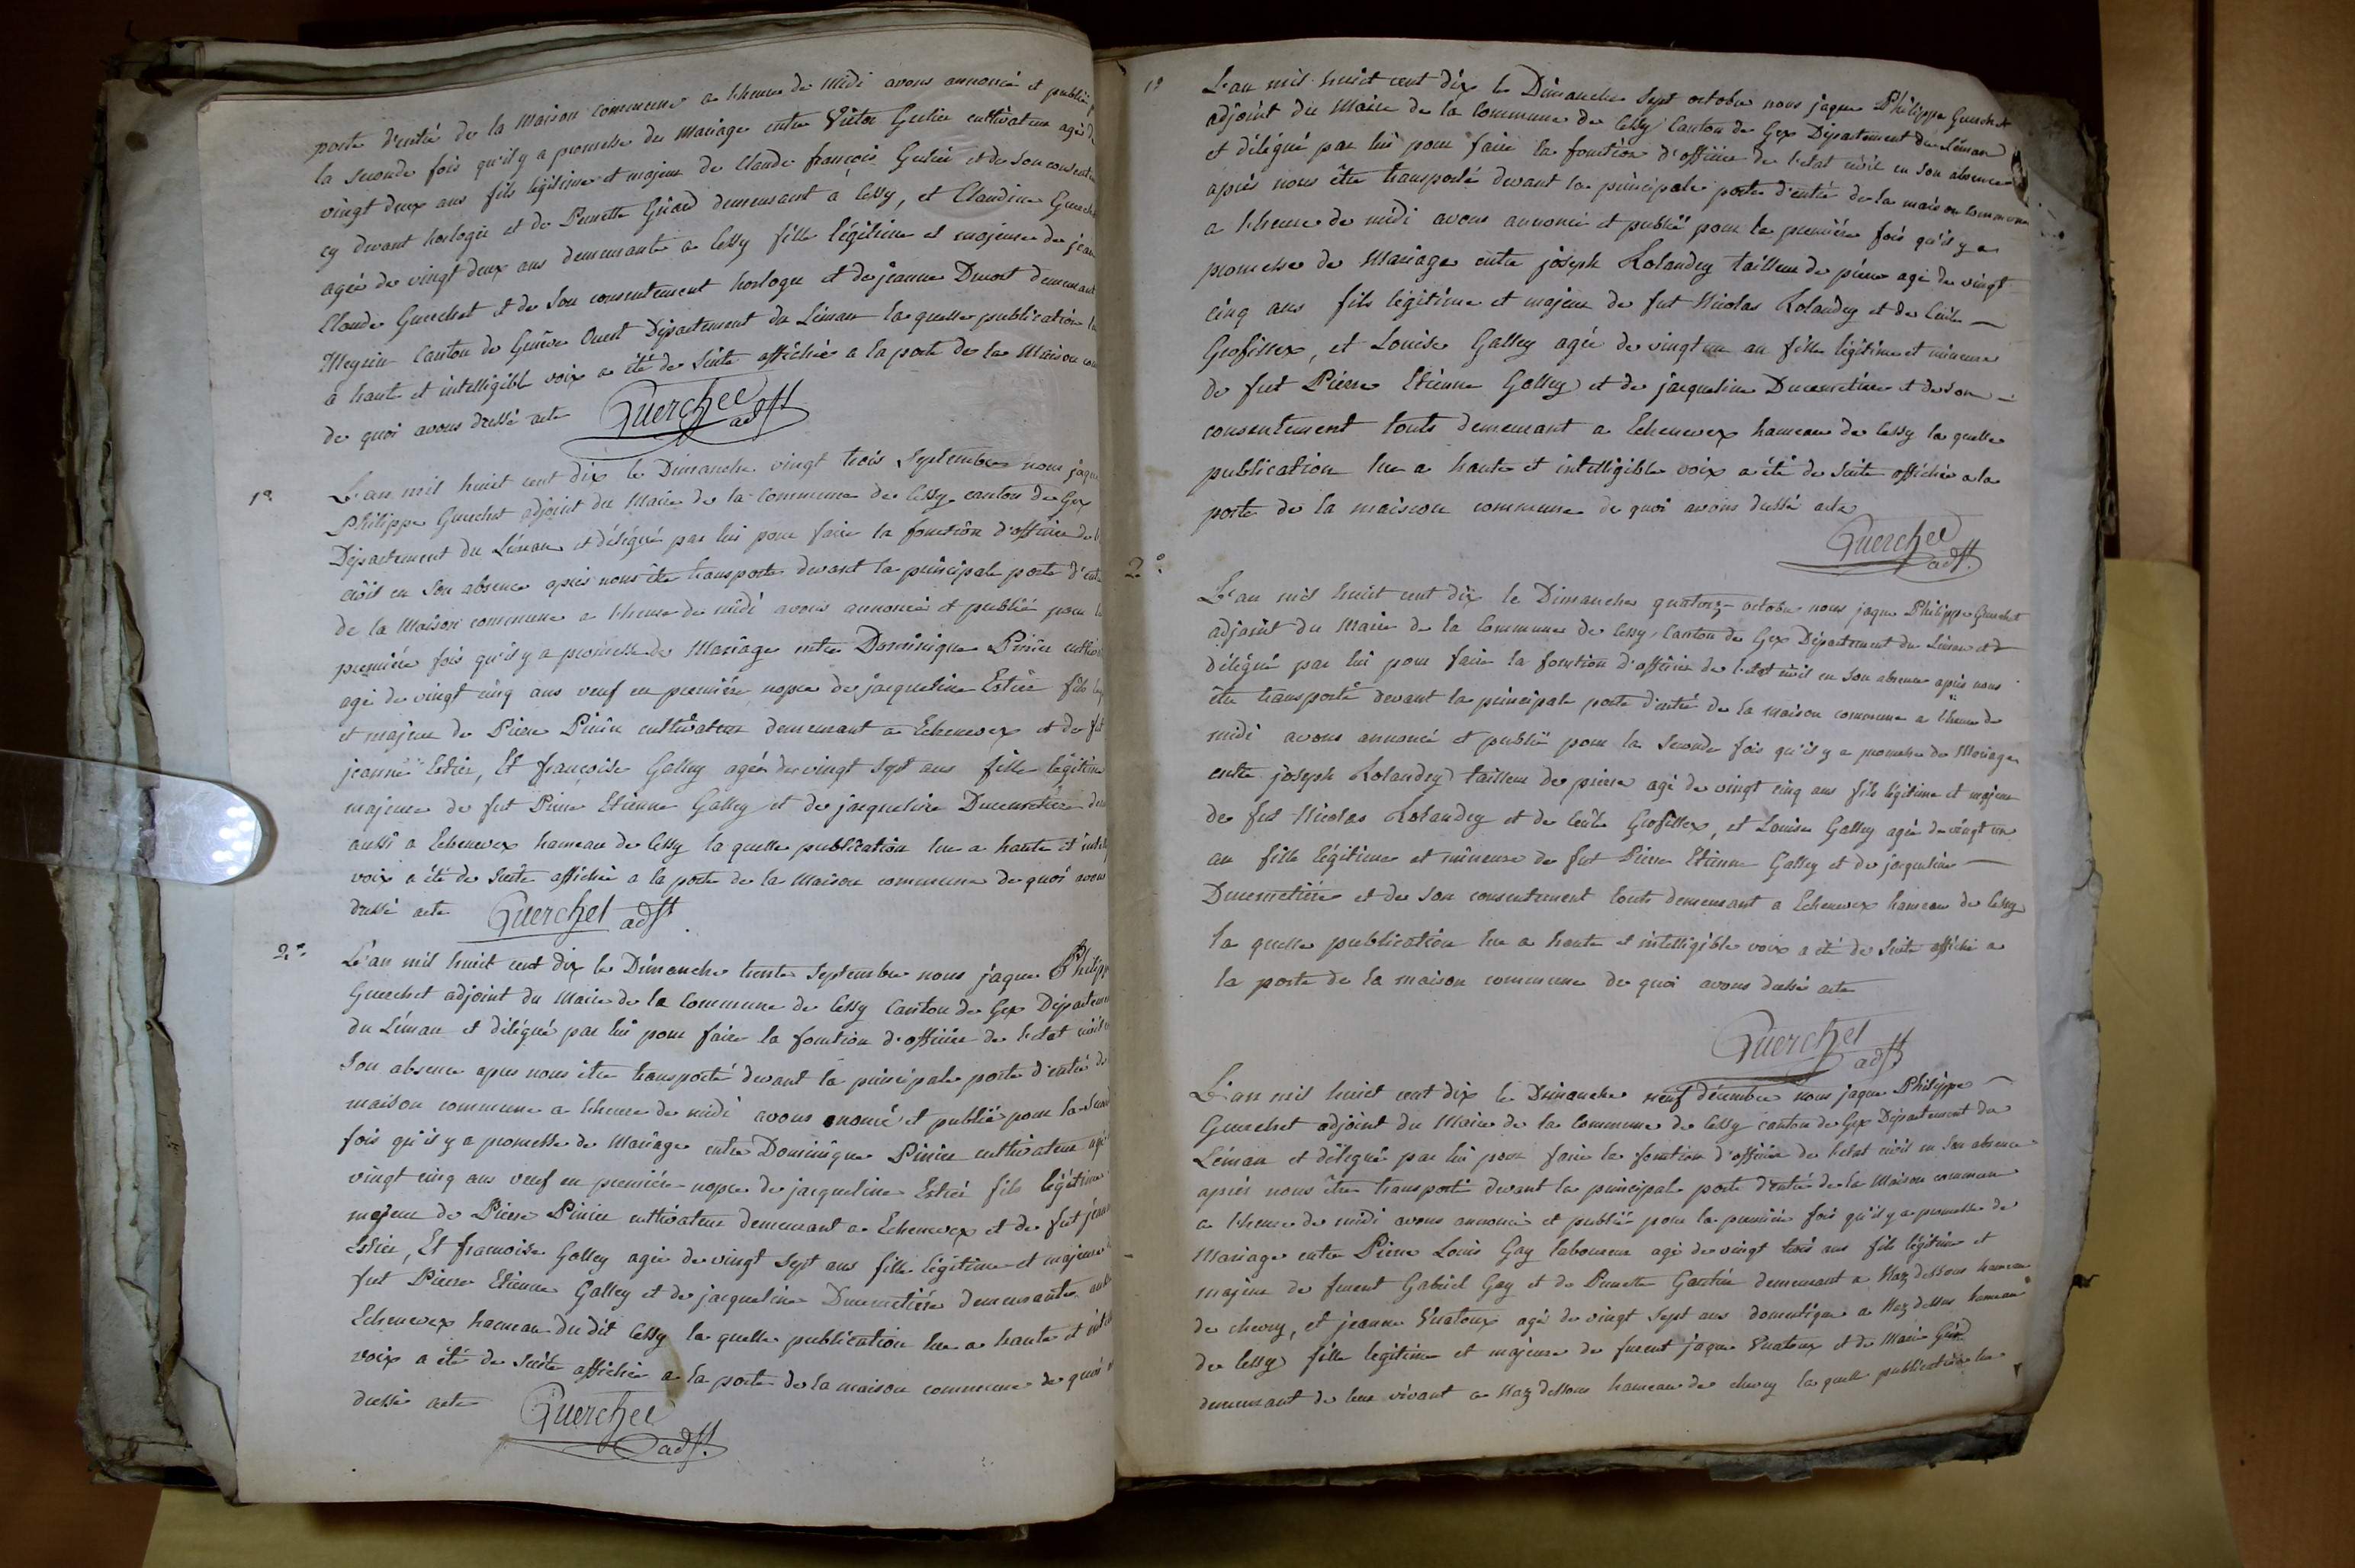 porte d'entré de la Maison commune a l'heure de midi avons annoncé et publié p
la seconde fois qu'il y a promesse de Mariage entre Victor Gulin cultivateur agé d
vingt deux ans fils légitime et majeur de Claude françois Gulin et de son consent
cy devant horloger et de Pernette Girod demeurant a Cessy, et Claudine Guerch
agée de vingt deux ans demeurante a Cessy fille légitime et majeure de jean
Claude Guerchet et de son consentement horloger et de jeanne demeurant
Meyrin Canton de Genève Ouest Département du Léman la quelle publication lu
a haute et intelligible voix a été de suite affichée a la porte de la Maison com
de quoi avons dressé acte Guerchet adjt
1º L'an mil huit cent dix le Dimanche vingt trois Septembre nous jaque
Philippe Guerchet adjoint du Maire de la Commune de Cessy canton de Gex
Département du Léman et délégué par lui pour faire la fonction d'officier de l
civil en son absence après nous être transporté devant la principale porte d'ent
de la Maison commune a l'heure de midi avons annoncé et publié pour la
première fois qu'il y a promesse de Mariage entre Dominique Pinier cultiv
agé de vingt cinq ans veuf en première nopce de jacqueline Estier fils leg
et majeur de Pierre Pinier cultivateur demeurant a Echenevex et de fut
jeanne Estier, Et françoise Galley agée de vingt sept ans fille légitime
majeure de fut Pierre Etienne Galley et de jacqueline Ducimetière dem
aussi a Echenevex hameau de Cessy la quelle publication lue a haute et intell
voix a été de suite affichée a la porte de la Maison commune de quoi avons
dressé acte Guerchet adjt
2º L'an mil huit cent dix le Dimanche trente Septembre nous jaque Philipp
Guerchet adjoint du Maire de la Commune de Cessy Canton de Gex Départem
du Léman et délégué par lui pour faire la fonction d'officier de l'etat civil
Son absence apres nous être transporté devant la principale porte d'entré de
maison commune a l'heure de midi avons anoncé et publié pour la Secon
fois qu'il y a promesse de Mariage entre Dominique Pinier cultivateur agé
vingt cinq ans veuf en première nopce de jacqueline Estier fils légitime
majeur de Pierre Pinier cultivateur demeurant a Echenevex et de fut jean
Estier, Et francoise Galley agée de vingt sept ans fille légitime et majeure
fut Pierre Etienne Galley et de jacqueline Ducimetière demeurante aussi
Echenevex hameau du dit Cessy la quelle publication lue a haute et intel
voix a été de suite affichée a la porte de la maison commune de quoi
dressé acte Guerchet adjt.
1º L'an mil huit cent dix le Dimanche Sept octobre nous jaque Philippe Guerchet
adjoint du Maire de la Commune de Cessy Canton de Gex Département du Léman
et délégué par lui pour faire la fonction d'officier de l'etat civil en son absence
après nous être transporté devant la principale porte d'entré de la maison commune
a l'heure de midi avons annoncé et publié pour la première fois qu'il y a
promesse de Mariage entre joseph Rolandey tailleur de pierre agé de vingt
cinq ans fils légitime et majeur de fut Nicolas Rolandey et de Cécile
Grofillex, et Louise Galley agée de vingt un an fille légitime et mineure
de fut Pierre Etienne Galley et de jacqueline Ducimetière et de son
consentement touts demeurant a Echenevex hameau de Cessy la quelle
publication lue a haute et intelligible voix a été de suite affichée a la
porte de la maison commune de quoi avons dressé acte
Guerchet
adjt.
2º. L'an mil huit cent dix le Dimanche quatorze octobre nous jaque Philippe Guerchet
adjoint du Maire de la Commune de Cessy Canton de Gex Département du Léman et
délégué par lui pour faire la fonction d'officier de l'etat civil en son absence après nous
être transporté devant la principale porte d'entré de la maison commune a l'heure de
midi avons annoncé et publié pour la seconde fois qu'il y a promesse de Mariage
entre joseph Rolandey tailleur de pierre agé de vingt cinq ans fils légitime et majeur
de fut Nicolas Rolandey et de Cécile Grofillex, et Louise Galley agée de vingt un
an fille légitime et mineure de fut Pierre Etienne Galley et de jacqueline
Ducimetière et de son consentement touts demeurant a Echenevex hameau de Cessy
la quelle publication lue a haute et intelligible voix a été de suite affiché a
la porte de la maison commune de quoi avons dressé acte
Guerchet
adjt
L'an mil huit cent dix le Dimanche neuf décembre nous jaque Philippe
Guerchet adjoint du Maire de la Commune de Cessy canton de Gex Département du
Léman et délégué par lui pour faire la fonction d'officier de l'etat civil en son absence
après nous être transporté devant la principale porte d'entré de la Maison commune
a l'heure de midi avons annoncé et publié pour la première fois qu'il y a promesse de
Mariage entre Pierre Louis Gay laboureur agé de vingt trois ans fils légitime et
majeur de furent Gabriel Gay et de Pernette demeurant a Naz dessous hameau
de chevry, et jeanne Vuatoux agé de vingt sept ans domestique a Naz dessus hameau
de Cessy fille legitime et majeure de furent jaque Vuatoux et de Marie Girod
demeurant de leur vivant a Naz dessous hameau de chevry la quelle publication lue